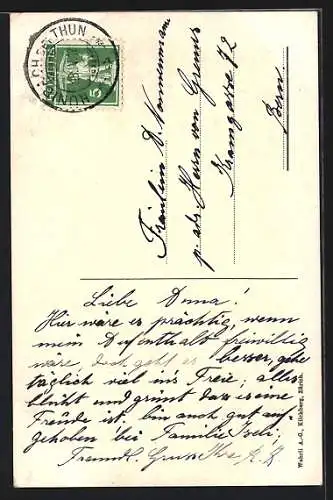 CH BEI THUN
HELVETIA
5
Fräulein D. Nonnenmann
p. adr. Herrn von Greuns
Kramgasse 72
Bern
Liebe Anna!
Hier wäre es prächtig, wenn
mein Aufenthalt freiwillig
wäre, doch geht es besser, gehe
täglich viel ins Freie; alles
blüht und grünt dass es eine
Freude ist. bin auch gut auf-
gehoben bei Familie
Freundl. Grüsse Ihre
Wehrli A.-G., Kilchberg, Zürich.